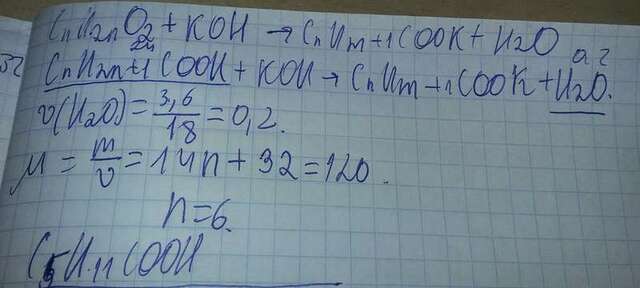 CnH2nO2 + KOH → CnHm+1COOK + H2O
CnH2n+1COOH + KOH → CnHm+1COOK + H2O.
ν(H2O) = 3,6/18 = 0,2.
M = m/ν = 14n + 32 = 120.
n = 6.
C5H11COOH